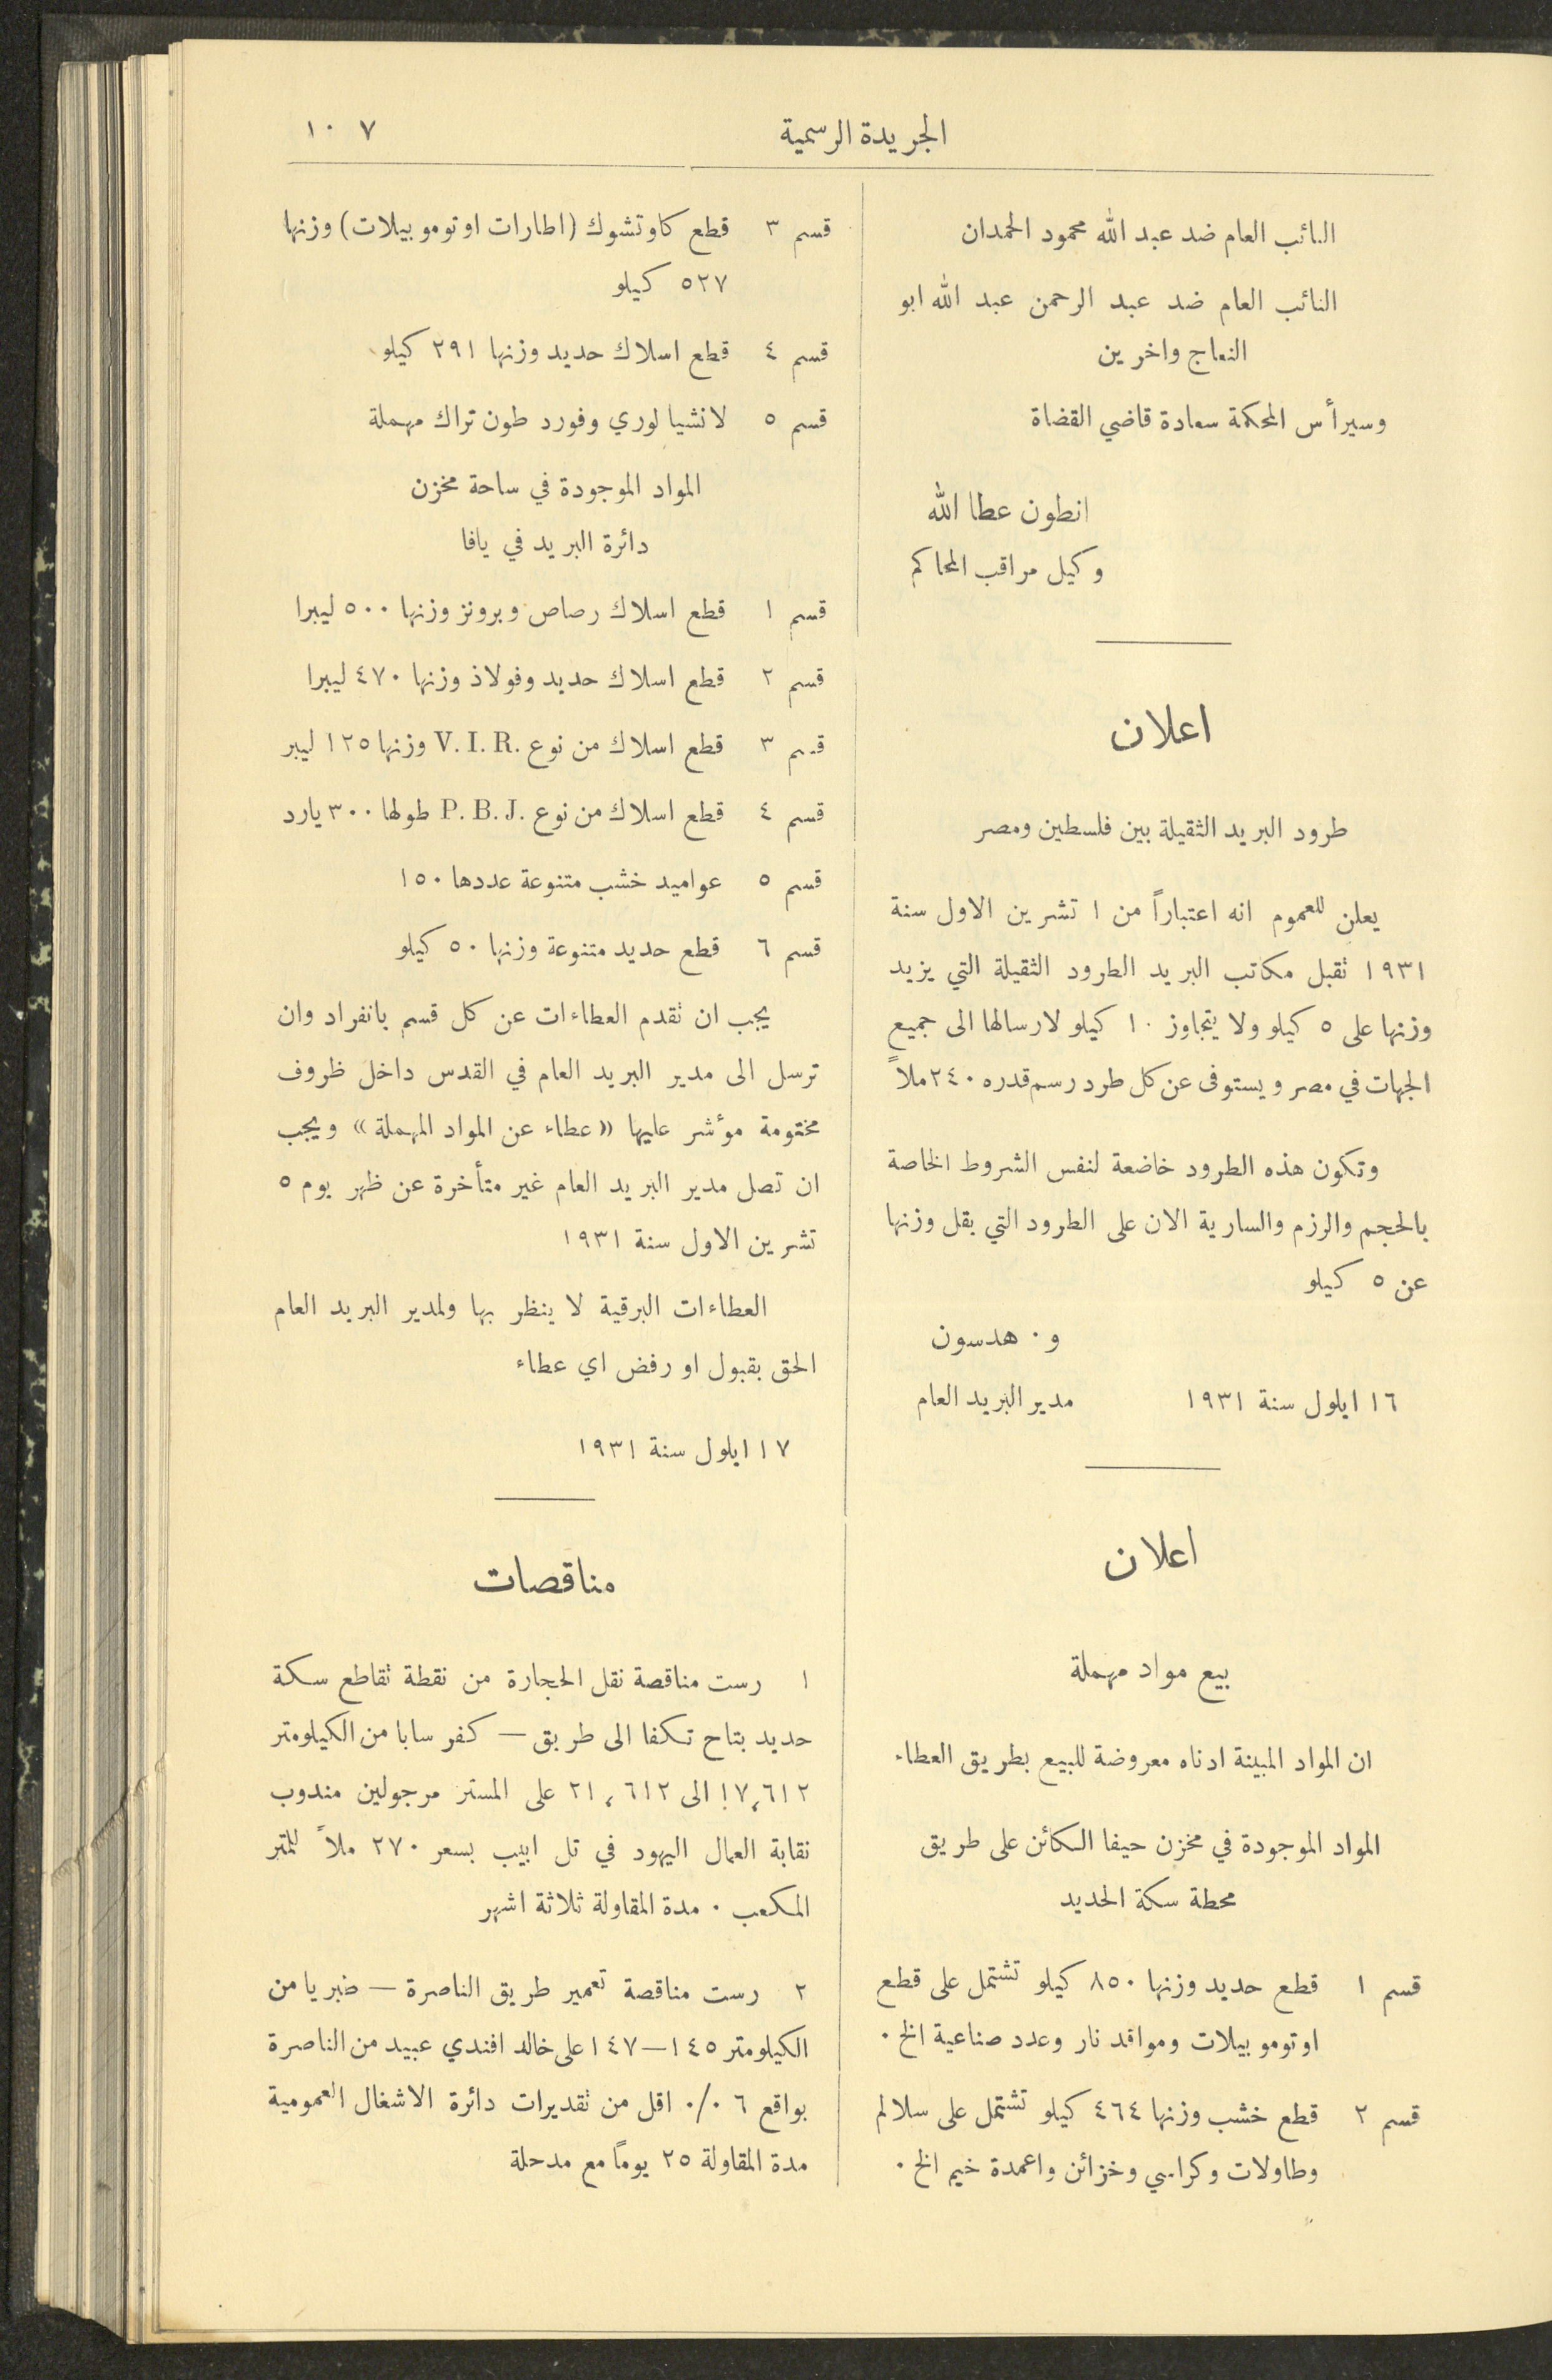 الجريدة الرسمية
١٠٧
النائب العام ضد عبد الله محمود الحمدان
النائب العام ضد عبد الرحمن عبد الله ابو
النعاج واخرين
وسيرأس المحكمة سعادة قاضي القضاة
انطون عطا الله
وكيل مراقب المحاكم
اعلان
طرود البريد الثقيلة بين فلسطين ومصر
يعلن للعموم انه اعتباراً من ١ تشرين الاول سنة
١٩٣١ تقبل مكاتب البريد الطرود الثقيلة التي يزيد
وزنها على ٥ كيلو ولا يتجاوز ١٠ كيلو لارسالها الى جميع
الجهات في مصر ويستوفى عن كل طرد رسم قدره ٢٤٠ ملاً
وتكون هذه الطرود خاضعة لنفس الشروط الخاصة
بالحجم والرزم والسارية الان على الطرود التي يقل وزنها
عن ٥ كيلو
و. هدسون
١٦ ايلول سنة ١٩٣١ مدير البريد العام
اعلان
بيع مواد مهملة
ان المواد المبينة ادناه معروضة للبيع بطريق العطاء
المواد الموجودة في مخزن حيفا الكائن على طريق
محطة سكة الحديد
قسم ١ قطع حديد وزنها ٨٥٠ كيلو تشتمل على قطع
اوتوموبيلات ومواقد نار وعدد صناعية الخ.
قسم ٢ قطع خشب وزنها ٤٦٤ كيلو تشتمل على سلالم
وطاولات وكراسي وخزائن واعمدة خيم الخ.
قسم ٣ قطع كاوتشوك (اطارات اوتوموبيلات) وزنها
٥٢٧ كيلو
قسم ٤ قطع اسلاك حديد وزنها ٢٩١ كيلو
قسم ٥ لانشيا لوري وفورد طون تراك مهملة
المواد الموجودة في ساحة مخزن
دائرة البريد في يافا
قسم ١ قطع اسلاك رصاص وبرونز وزنها ٥٠٠ ليبرا
قسم ٢ قطع اسلاك حديد وفولاذ وزنها ٤٧٠ ليبرا
قسم ٣ قطع اسلاك من نوع V. I. R. وزنها ١٢٥ ليبر
قسم ٤ قطع اسلاك من نوع P. B. J. طولها ٣٠٠ يارد
قسم ٥ عواميد خشب متنوعة عددها ١٥٠
قسم ٦ قطع حديد متنوعة وزنها ٥٠ كيلو
يجب ان تقدم العطاءات عن كل قسم بانفراد وان
ترسل الى مدير البريد العام في القدس داخل ظروف
مختومة مؤشر عليها «عطاء عن المواد المهملة» ويجب
ان تصل مدير البريد العام غير متأخرة عن ظهر يوم ٥
تشرين الاول سنة ١٩٣١
العطاءات البرقية لا ينظر بها ولمدير البريد العام
الحق بقبول او رفض اي عطاء
١٧ ايلول سنة ١٩٣١
مناقصات
١ رست مناقصة نقل الحجارة من نقطة تقاطع سكة
حديد بتاح تكفا الى طريق — كفر سابا من الكيلومتر
١٧,٦١٢ الى ٢١,٦١٢ على المستر مرجولين مندوب
نقابة العمال اليهود في تل ابيب بسعر ٢٧٠ ملاً للمتر
المكعب. مدة المقاولة ثلاثة اشهر
٢ رست مناقصة تعمير طريق الناصرة — طبريا من
الكيلومتر ١٤٥—١٤٧ على خالد افندي عبيد من الناصرة
بواقع ٦ ٠/٠ اقل من تقديرات دائرة الاشغال العمومية
مدة المقاولة ٢٥ يوماً مع مدحلة